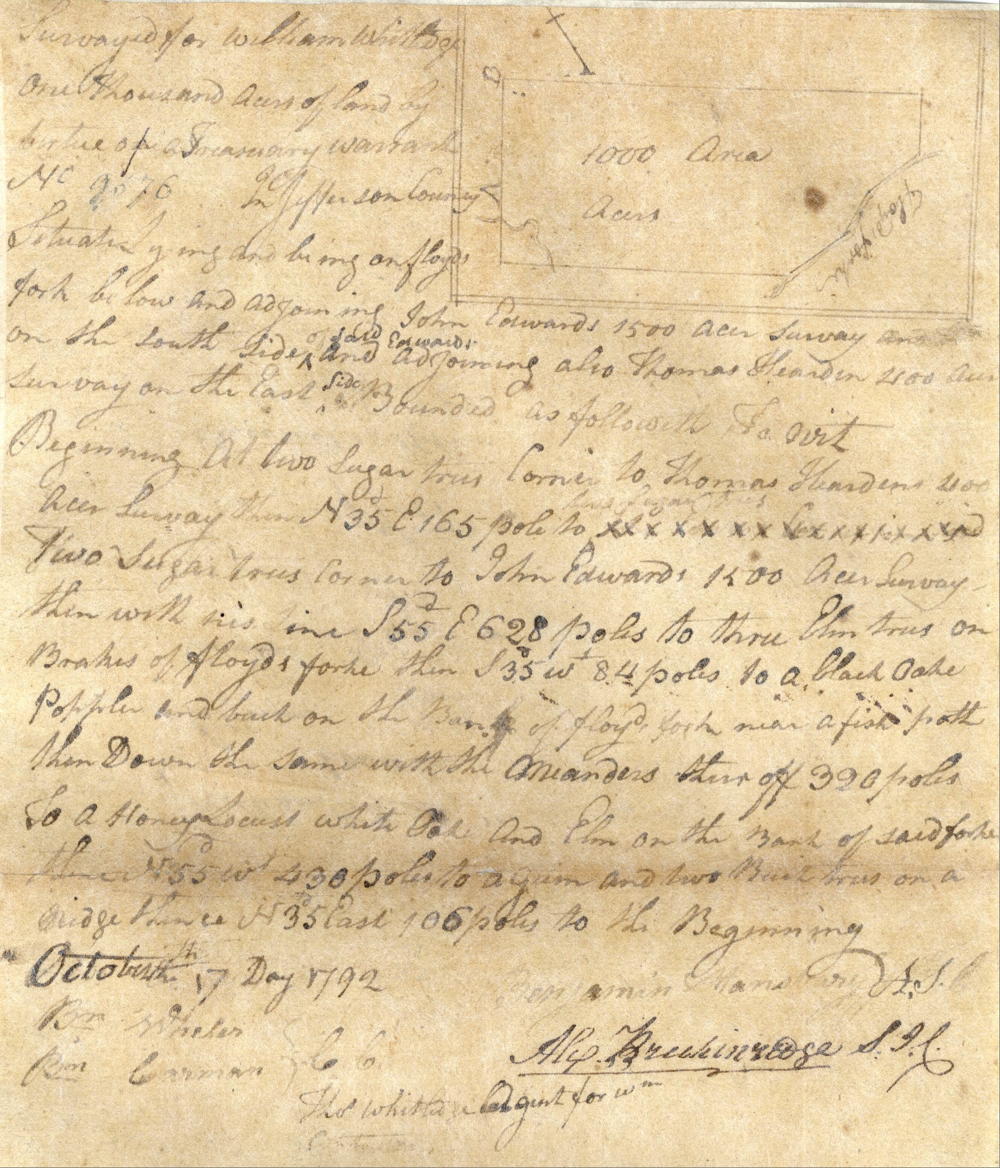 Surveyed for William Whittdge
One thousand Acers of land by
birtue of a Treasuary warrant
No 2076 In Jefferson County
Situate Lying and being on floyds
fork below and adjoining John Edwards 1500 acer survay and
on the south side of said Edwards And adjoining also Thomas Hearden 400 acer
survay on the East side Bounded as followeth To wit
Beginning At two Sugar trees Corner to Thomas Heardens 400
Acer Survay then N 35d E 165 pole to
two Sugar trees
Two Sugar trees Corner to John Edwards 1500 Acer Survay
then with his line S 55d E 628 poles to three Elm trees on
Brakes of floyds forke then S 35d wt 84 poles to a black Oake
Poppler and buck on the Bank of floyds fork near a fish pott
then Down the same with the Meanders ther off 320 poles
To a Honey Locust white Oake And Elm on the Bank of said forke
thence N 55d wt 430 poles to a gum and two Buck trees on a
Ridge thence N 35d East 106 poles to the Beginning
October 17th Day 1792
Benjamin A.S.
Bn Wheler
Bn Carman } C C
Alex Breckinridge S.J.C.
Thos Whittdge Agent for wm
B
1000 Area
Acers
floyds fork